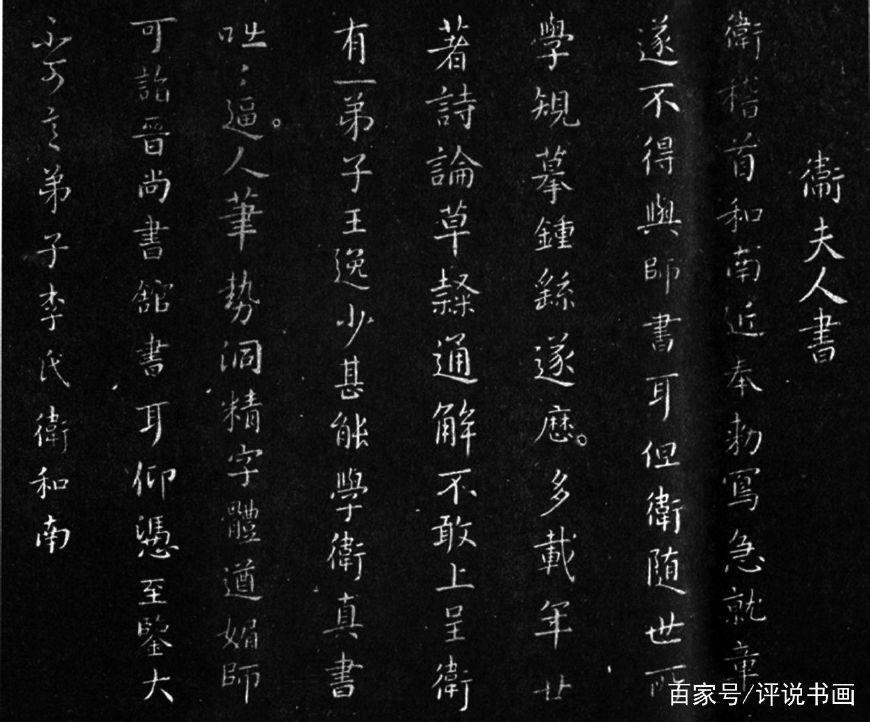 衛夫人書
衛稽首和南近奉勅寫急就章
遂不得與師書耳但衛隨世所
學規摹鍾繇遂歷多載年廿
著詩論草隸通解不敢上呈衛
有一弟子王逸少甚能學衛真書
咄〻逼人筆勢洞精字體遒媚師
可詣晉尚書館書耳仰憑至鑒大
不可言弟子李氏衛和南
百家号/评说书画